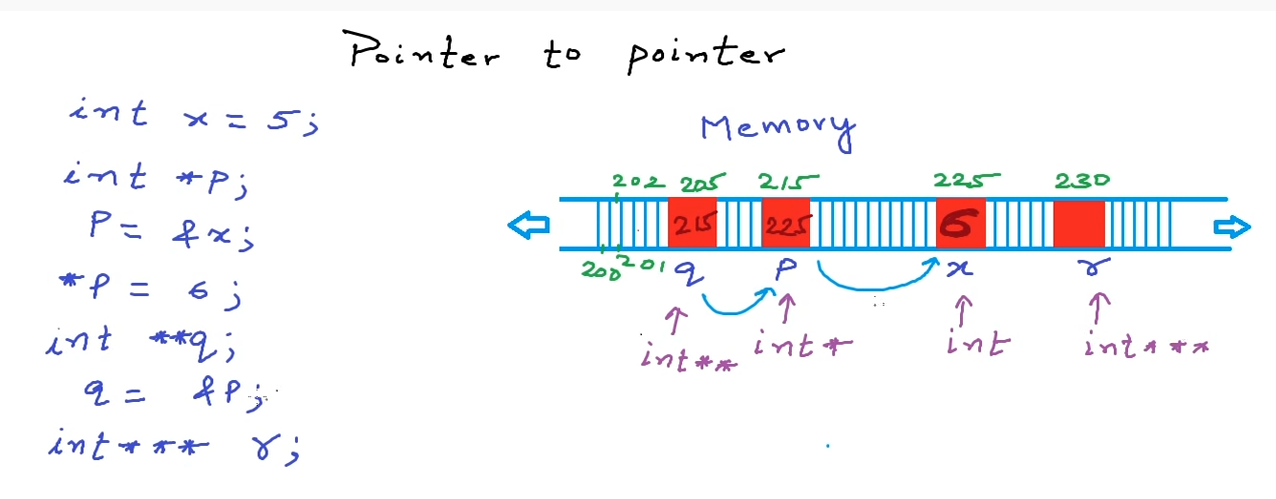 Pointer to pointer
int x = 5;
int *p;
P = &x;
*P = 6;
int **q;
q = &P;
int*** r;
Memory
202 205 215 225 230
215 225 6
200 201 q P x r
int** int* int int***